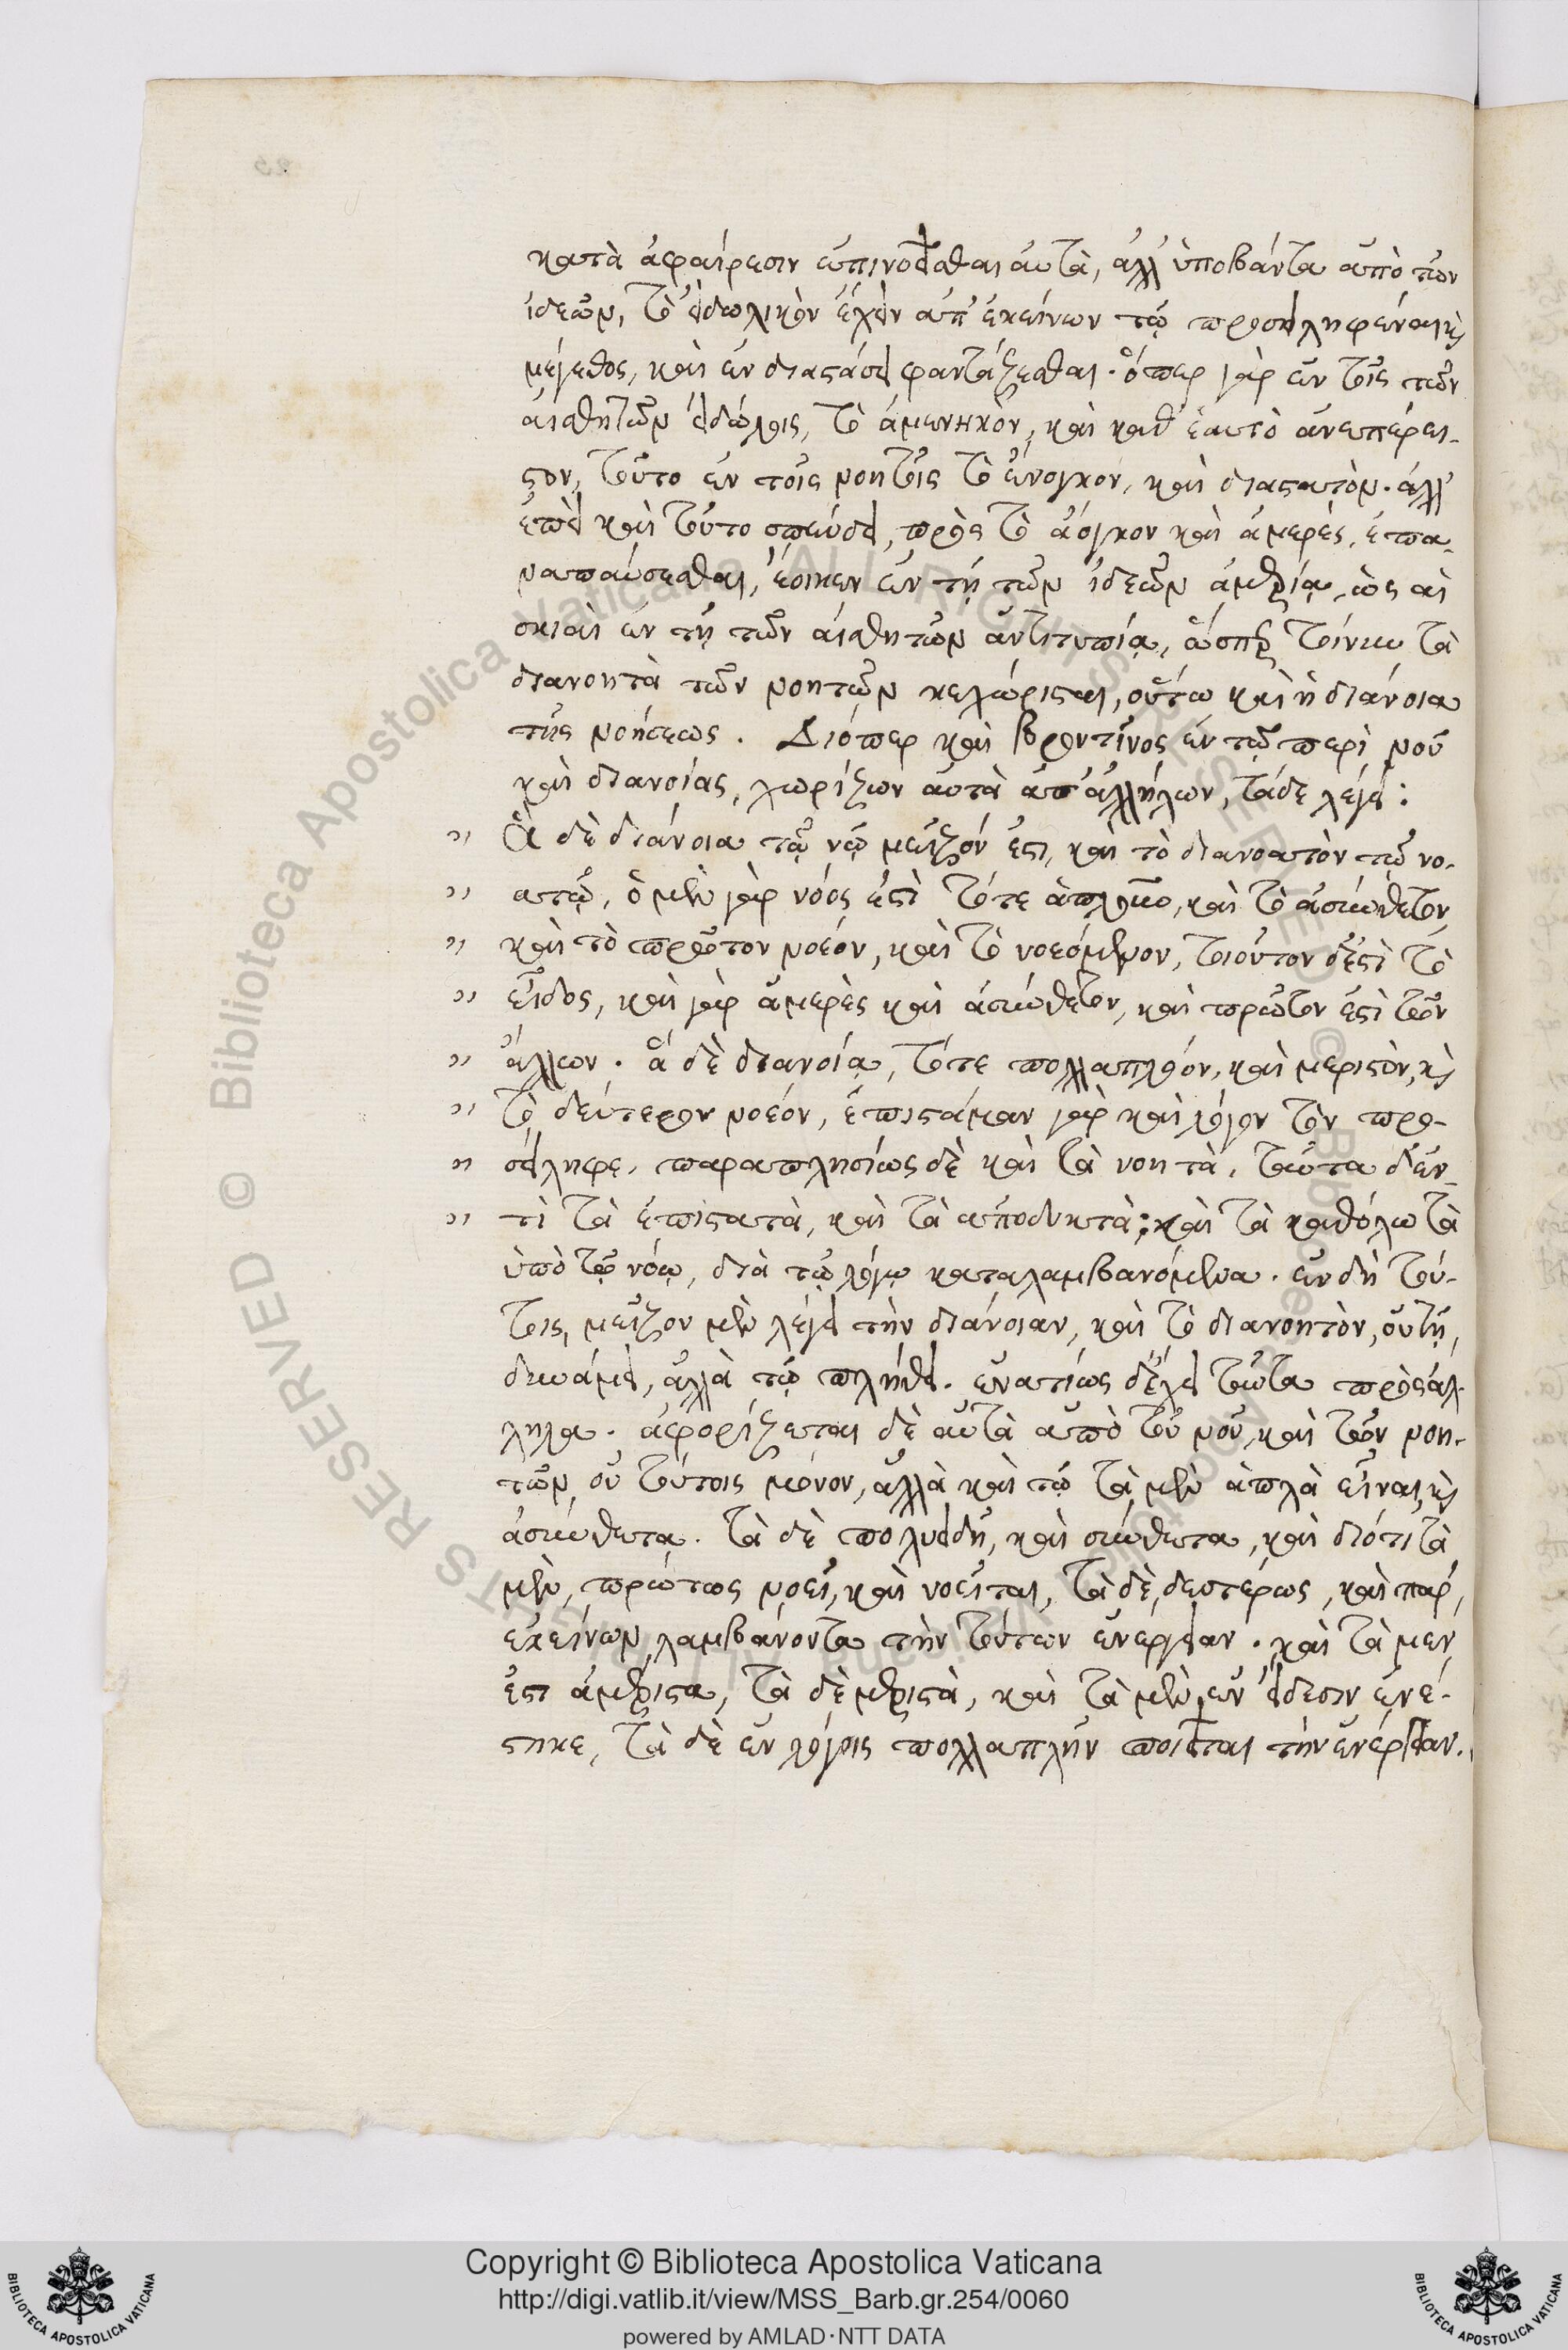 κατὰ ἀφαίρεσιν ἐπινοεῖσθαι αὐτὰ, ἀλλ' ὑποβάντα ἀπὸ τῶν
ἰδεῶν, τὸ εἰδωλικὸν ἔχειν ἀπ' ἐκείνων τῷ προσειληφέναι καὶ
μέγεθος, καὶ ἐν διαστάσει φαντάζεσθαι. ὅπερ γὰρ ἐν τοῖς τῶν
αἰσθητῶν εἰδώλοις, τὸ ἀμενηκὸν, καὶ καθ' ἑαυτὸ ἀνεπέρει-
στον, τοῦτο ἐν τοῖς νοητοῖς τὸ ἔνογκον, καὶ διαστατόν. ἀλλ'
ἐπεὶ καὶ τοῦτο σπεύδει, πρὸς τὸ ἄογκον καὶ ἀμερὲς, ἐπα-
ναπαύσεσθαι, ἔοικεν ἐν τῇ τῶν ἰδεῶν ἀμερίᾳ, ὡς αἱ
σκιαὶ ἐν τῇ τῶν αἰσθητῶν ἀντιτυπίᾳ, ὥσπερ τοίνυν τὰ
διανοητὰ τῶν νοητῶν κεχώρισται, οὕτω καὶ ἡ διάνοια
τῆς νοήσεως. Διόπερ καὶ βροντῖνος ἐν τῷ περὶ νοῦ
καὶ διανοίας, χωρίζων αὐτὰ ἀπ' ἀλλήλων, τάδε λέγει:
" Ἁ δὲ διάνοια τῷ νῷ μεῖζόν ἐστι, καὶ τὸ διανοατὸν τῷ νο-
" ατῷ, ὁ μὲν γὰρ νόος ἐστὶ τό τε ἁπλόον, καὶ τὸ ἀσύνθετον,
" καὶ τὸ πρῶτον νοέον, καὶ τὸ νοεόμενον, τοιοῦτον δ' ἐστὶ τὸ
" εἶδος, καὶ γὰρ ἀμερὲς καὶ ἀσύνθετον, καὶ πρῶτον ἐστὶ τῶν
" ἄλλων. ἁ δὲ διανοίᾳ, τό τε πολλαπλόον, καὶ μεριστὸν, καὶ
" τὸ δεύτερον νοέον, ἐπιστάμαν γὰρ καὶ λόγον τὸν προ-
" σείληφε, παραπλησίως δὲ καὶ τὰ νοητὰ, ταῦτα δ' ἐν-
" τὶ τὰ ἐπιστατὰ, καὶ τὰ ἀποδεικτὰ: καὶ τὰ καθόλω τὰ
ὑπὸ τῷ νόῳ, διὰ τῷ λόγῳ καταλαμβανόμενα. ἐν δὴ τού-
τοις, μεῖζον μὲν λέγει τὴν διάνοιαν, καὶ τὸ διανοητὸν, οὐ τῇ
δυνάμει, ἀλλὰ τῷ πλήθει. ἐνατίως δ' ἔχει ταῦτα πρὸς ἄλ-
ληλα. ἀφορίζεται δὲ αὐτὰ ἀπὸ τοῦ νοῦ, καὶ τῶν νοη-
τῶν οὐ τούτοις μόνον, ἀλλὰ καὶ τῷ τὰ μὲν ἁπλὰ εἶναι καὶ
ἀσύνθετα. τὰ δὲ πολυειδῆ, καὶ σύνθετα, καὶ διότι τὰ
μὲν, πρώτως νοεῖ, καὶ νοεῖται, τὰ δὲ, δευτέρως, καὶ παρ'
ἐκείνων λαμβάνοντα τὴν τούτων ἐνέργειαν. καὶ τὰ μεν
ἐστι ἀμέριστα, τὰ δὲ μεριστὰ, καὶ τὰ μὲν ἐν εἴδεσιν ἐνέ-
στηκε, τὰ δὲ ἐν λόγοις πολλαπλῆν ποιεῖται τὴν ἐνέργειαν.
Copyright © Biblioteca Apostolica Vaticana
http://digi.vatlib.it/view/MSS_Barb.gr.254/0060
powered by AMLAD·NTT DATA
BIBLIOTECA APOSTOLICA VATICANA
BIBLIOTECA APOSTOLICA VATICANA
© Biblioteca Apostolica Vaticana ALL RIGHTS RESERVED © Biblioteca Apostolica Vaticana ALL RIGHTS RESERVED